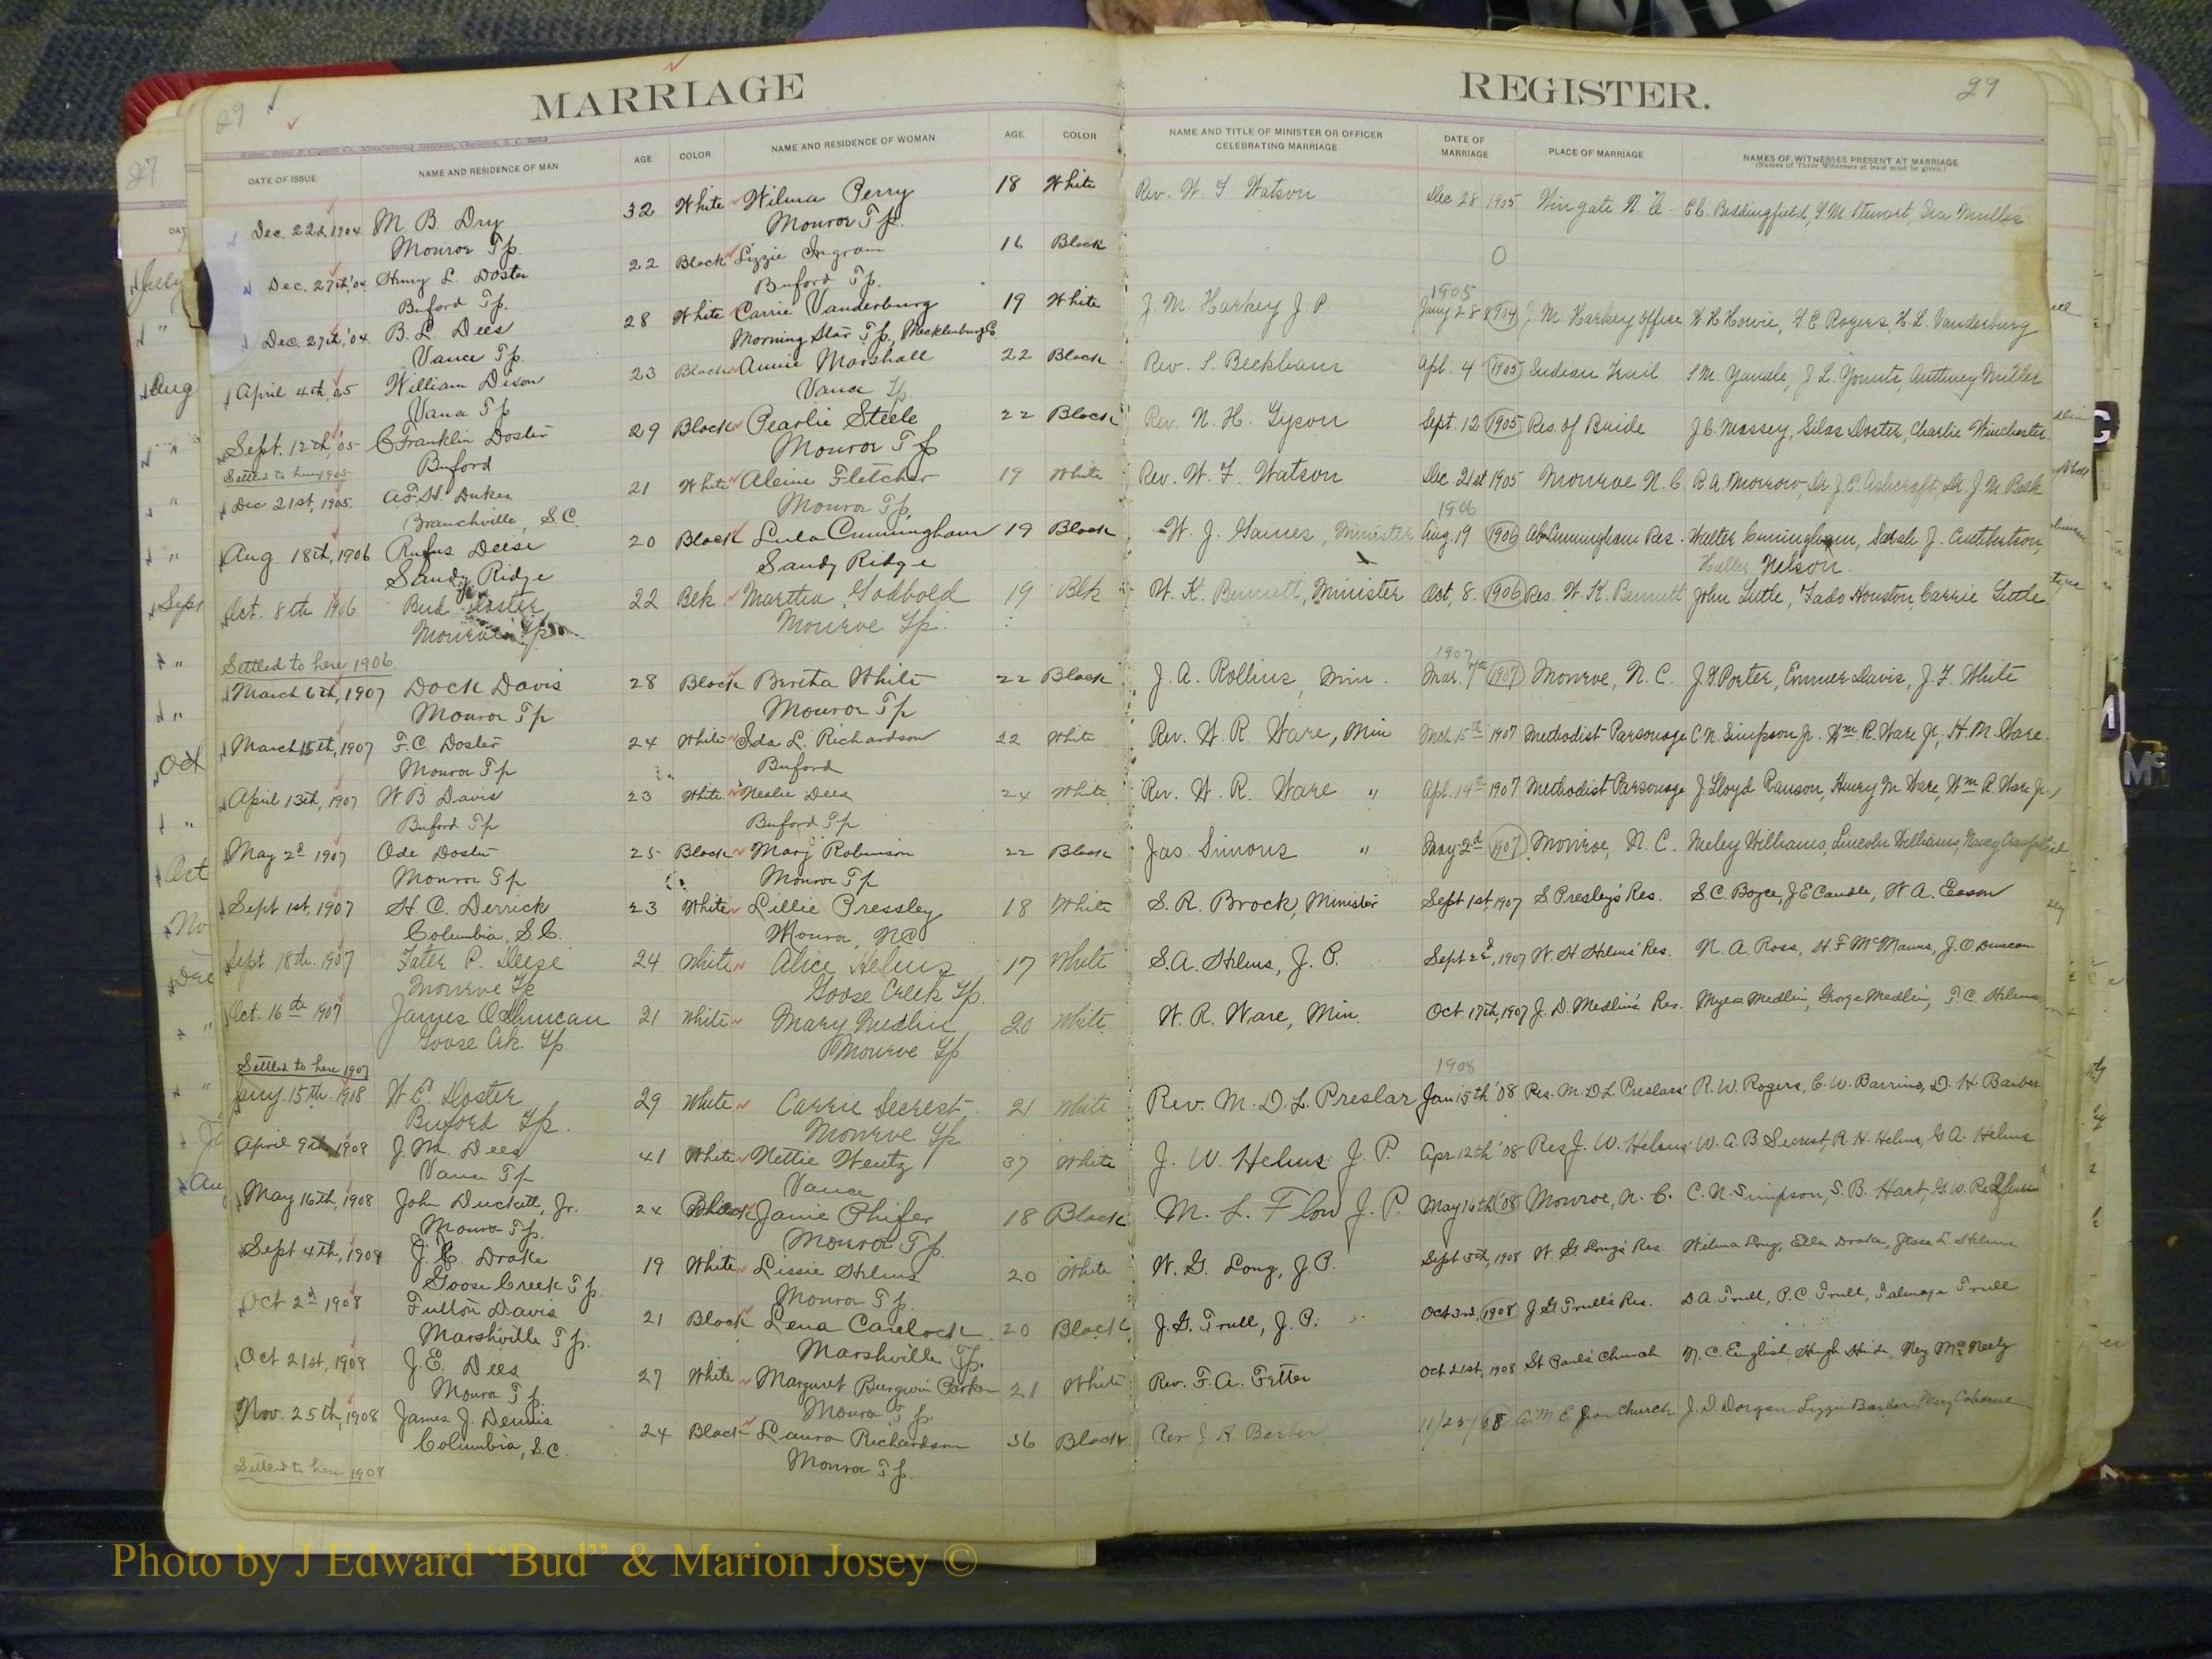 MARRIAGE REGISTER.
29 29
27
DATE OF ISSUE NAME AND RESIDENCE OF MAN AGE COLOR NAME AND RESIDENCE OF WOMAN AGE COLOR NAME AND TITLE OF MINISTER OR OFFICER CELEBRATING MARRIAGE DATE OF MARRIAGE PLACE OF MARRIAGE NAMES OF WITNESSES PRESENT AT MARRIAGE
(Names of Three Witnesses at least must be given.)
Dec. 22d, 1904 M. B. Dry 32 White Wilma Perry 18 White Rev. W. F Watson Dec 28 1905 Wingate N. C. C.C. Beddingfield, Stewart,
Monroe Tp. Monroe Tp.
Dec. 27th, '04 Henry L. Doster 22 Black Lizzie Ingram 16 Black
Buford Tp. Buford Tp.
1905
Dec. 27th, '04 B. L. Dees 28 White Carrie Vanderburg 19 White J. M. Harkey J P Jany 28 1904 J M Harkey office W. H Howie, Rogers, H. L. Vanderburg
Vance Tp. Morning Star Tp., Mecklenburg Co
April 4th, 05 William Dixon 23 Black Annie Marshall 22 Black Rev. S. Beckham Apl. 4 1905 Indian Trail J. L. Younts,
Vance Tp Vance Tp.
Sept. 12th, '05 Franklin Doster 29 Black Pearlie Steele 22 Black Rev. N. H. Tyson Sept. 12 1905 Res. of Bride J. C. Massey, Silas Doster, Charlie Winchester
Buford Monroe Tp
Settled to here 1905
Dec 21st, 1905. Dukes 21 White Aleine Fletcher 19 White Rev. W. F. Watson Dec. 21st 1905 Monroe N. C R. A. Morrow, Dr J. E. Ashcraft, Dr. J. M. Belk
Branchville, S.C. Monroe Tp.
1906
Aug. 18th, 1906 Rufus Deese 20 Black Lula Cunningham 19 Black W. J. Gaines, Minister Aug. 19 1906 Cunningham Res. Walter Cuningham, Sarah J. Cuthbertson,
Sandy Ridge Sandy Ridge Nelson.
Oct. 8th 1906 Bud Doster 22 Blk Martha Godbold 19 Blk W. K. Bennett, Minister Oct, 8. 1906 Res. W. K. Bennett John Little, Houston, Carrie Little
Monroe Tp Monroe Tp.
Settled to here 1906
1907
March 6th, 1907 Dock Davis 28 Black Bertha White 22 Black J. A. Rollins, Min. Mar. 7th 1907 Monroe, N. C. Porter, Davis, J. F. White
Monroe Tp Monroe Tp
March 15th, 1907 F. C. Doster 24 White Ida L. Richardson 22 White Rev. W. R. Ware, Min Mch. 15th 1907 Methodist Parsonage C. N. Simpson Jr. Wm. R. Ware Jr, H. M. Ware.
Monroe Tp Buford
April 13th, 1907 W B Davis 23 White Dees 24 White Rev. W. R. Ware " Apl. 14th 1907 Methodist Parsonage J. Lloyd Ranson, Henry M Ware, Wm R. Ware Jr.,
Buford Tp Buford Tp
May 2d 1907 Ode Doster 25 Black Mary Robinson 22 Black Jas. Simons " May 2d 1907 Monroe, N. C. Neeley Williams, Lincoln Williams,
Monroe Tp Monroe Tp
Sept 1st, 1907 H. C. Derrick 23 White Lillie Pressley 18 White S. R. Brock, Minister Sept 1st, 1907 S. Presley's Res. S. C. Boyce, J E Caudle, W. A. Eason
Columbia, S.C. Monroe, NC
Sept 18th. 1907 P. Deese 24 White Alice Helms 17 White S. A. Helms, J. P. Sept 22d, 1907 W. H Helms' Res. N. A. Ross, H. F McManus, J. O Duncan
Monroe Tp Goose Creek Tp.
Oct. 16th 1907 James O Duncan 21 White Mary Medlin 20 White W. R. Ware, Min. Oct. 17th, 1907 J. D. Medlin's Res. Myles Medlin, George Medlin, Helms
Goose Crk. Tp Monroe Tp
Settled to here 1907
1908
Jany. 15th. 1908 W. E. Doster 29 White Carrie Secrest 21 White Rev. M. D. L. Preslar Jan 15th '08 Res. M. D L. Preslars' R. W. Rogers, C. W. Barrino, D. H. Barber
Buford Tp. Monroe Tp
April 9th, 1908 J. M. Dees 41 White Nettie Wentz 37 White J. W. Helms J. P. Apr 12th '08 Res J. W. Helms W. A. B Secrest, R. H. Helms, G. A. Helms
Vance Tp Vance
May 16th, 1908 John Duckett, Jr. 24 Black Janie Phifer 18 Black M. L. Flow J. P. May 16th '08 Monroe, N. C. C. N. Simpson, S. B. Hart, G. W. Redfearn
Monroe Tp. Monroe Tp
Sept 4th, 1908 J. C. Drake 19 White Lissie Helms 20 White W. G. Long, J. P. Sept 5th, 1908 W. G Long's Res. Wilma Long, Ella Drake, Jesse L. Helms
Goose Creek Tp. Monroe Tp.
Oct 2d 1908 Fulton Davis 21 Black Lena Carelock 20 Black J. G. Trull, J. P. Oct 3rd, 1908 J G Trull's Res. D A. Trull, P. C. Trull, Talmage Trull
Marshville Tp. Marshville Tp.
Oct 21st, 1908 J. E. Dees 27 White Margaret Burgwin Parker 21 White Rev. F. A. Fetter Oct 21st, 1908 St Paul's Church N. C. English, Hugh Hinde, Ney McNeely
Monroe Tp. Monroe Tp.
Nov. 25th, 1908 James J. Dennis 24 Black Laura Richardson 36 Black Rev J. R Barber 11/25/08 A. M E Zion Church J. D. Dorgan Lizzie Barber Mary
Columbia, S.C. Monroe Tp.
Settled to here 1908
Photo by J Edward “Bud” & Marion Josey ©